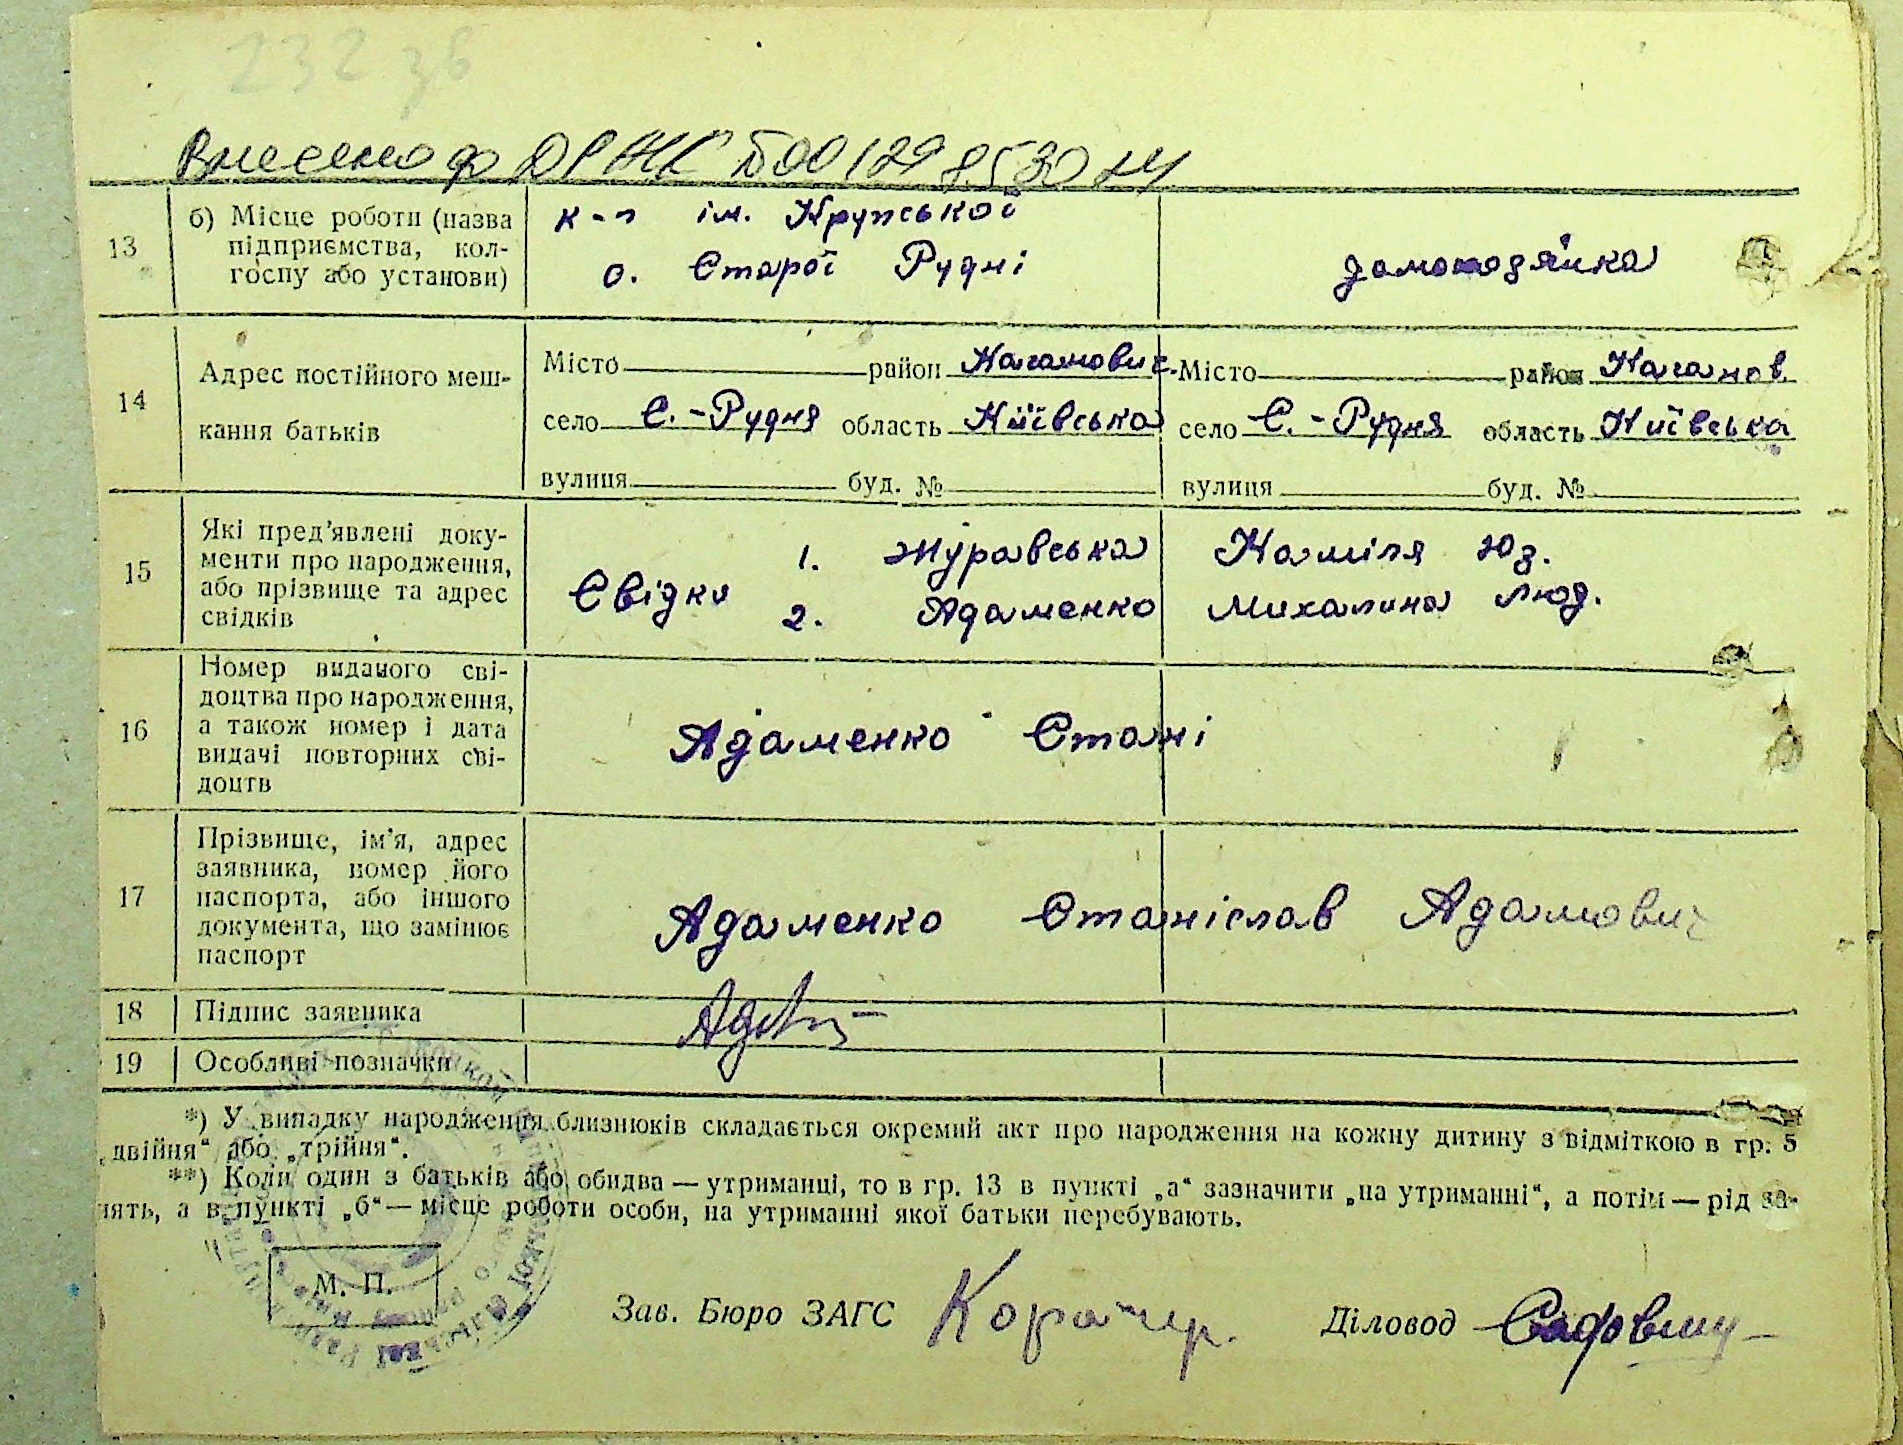 232 зв
Внесено в ДРАЦС №00129853024
13 б) Місце роботи (назва підприємства, колгоспу або установи)
к-п ім. Крупської
с. Старої Рудні
домогосподинка
14 Адрес постійного меш-
кання батьків
Місто район Каганович.
село С.-Рудня область Київська
вулиця буд. №
Місто район Каганов.
село С.-Рудня область Київська
вулиця буд. №
15 Які пред'явлені доку-
менти про народження,
або прізвище та адрес
свідків
Свідки 1. Журавська Каміля Юз.
2. Адаменко Михалина Люд.
16 Номер виданого сві-
доцтва про народження,
а також номер і дата
видачі повторних сві-
доцтв
Адаменко Стані
17 Прізвище, ім'я, адрес
заявника, номер його
паспорта, або іншого
документа, що замінює
паспорт
Адаменко Станіслав Адамович
18 Підпис заявника
19 Особливі позначки
*) У випадку народження близнюків складається окремий акт про народження на кожну дитину з відміткою в гр. 5
„двійня“ або „трійня“.
**) Коли один з батьків або обидва — утриманці, то в гр. 13 в пункті „а“ зазначити „на утриманні“, а потім — рід за-
нять, а в пункті „б“ — місце роботи особи, на утриманні якої батьки перебувають.
М. П.
Зав. Бюро ЗАГС
Діловод